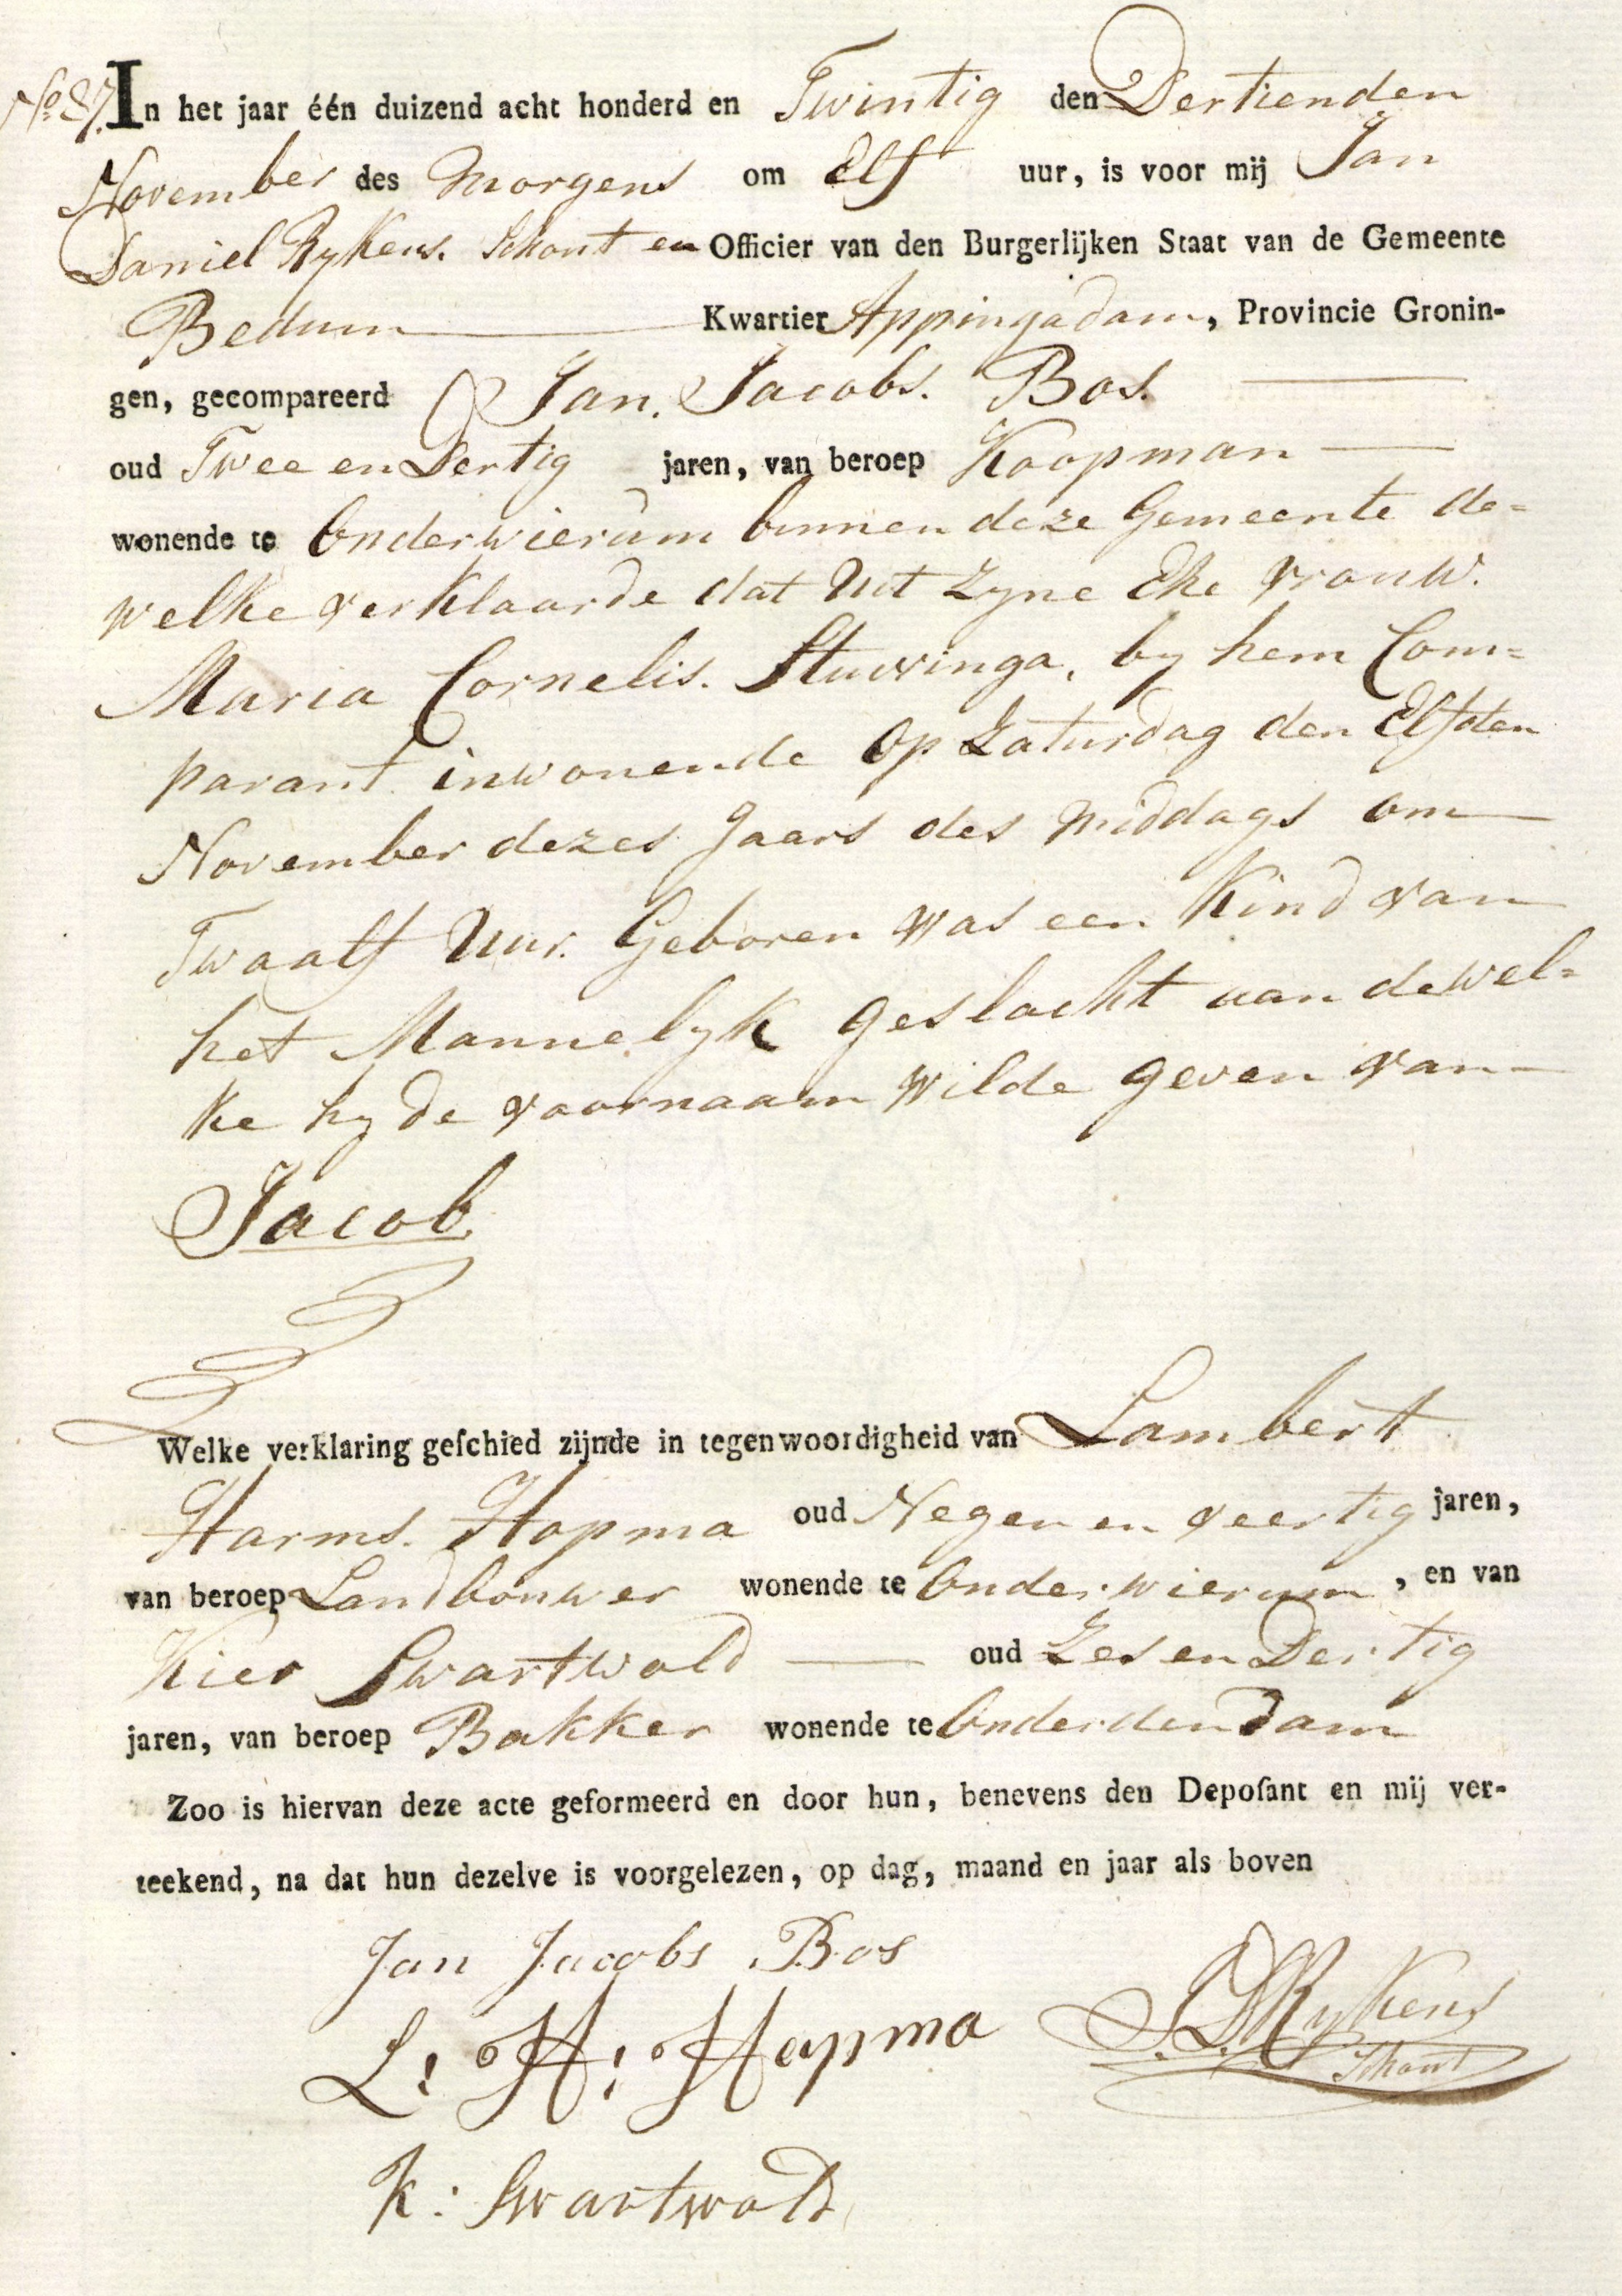 No. 87. In het jaar één duizend acht honderd en Twintig den Dertienden
November des Morgens om Elf uur, is voor mij Jan
Daniel Rykens. Schout en Officier van den Burgerlijken Staat van de Gemeente
Bedum Kwartier Appingadam, Provincie Gronin-
gen, gecompareerd Jan. Jacobs. Bos.
oud Twee en Dertig jaren, van beroep Koopman
wonende te Onderwierum binnen deze Gemeente de=
welke verklaarde dat Uit Zyne Ehe vrouw.
Maria Cornelis. Stuivinga, by hem Com=
parant inwonende op Zaturdag den Elfden
November dezes Jaars des Middags om
Twaalf Uur. Geboren was een Kind van
het Mannelyk geslacht aan dewel=
ke hy de voornaam Wilde geven van
Jacob.
Welke verklaring geſchied zijnde in tegenwoordigheid van Lambert
Harms. Hopma oud Negen en veertig jaren,
van beroep Landbouwer wonende te Onderwierum, en van
Kier Swartwold oud Zes en Dertig
jaren, van beroep Bakker wonende te Onderdendam
Zoo is hiervan deze acte geformeerd en door hun, benevens den Depoſant en mij ver-
teekend, na dat hun dezelve is voorgelezen, op dag, maand en jaar als boven
Jan Jacobs Bos
J. D. Rykens
Schout
L: H: Hopma
K: Swartwold